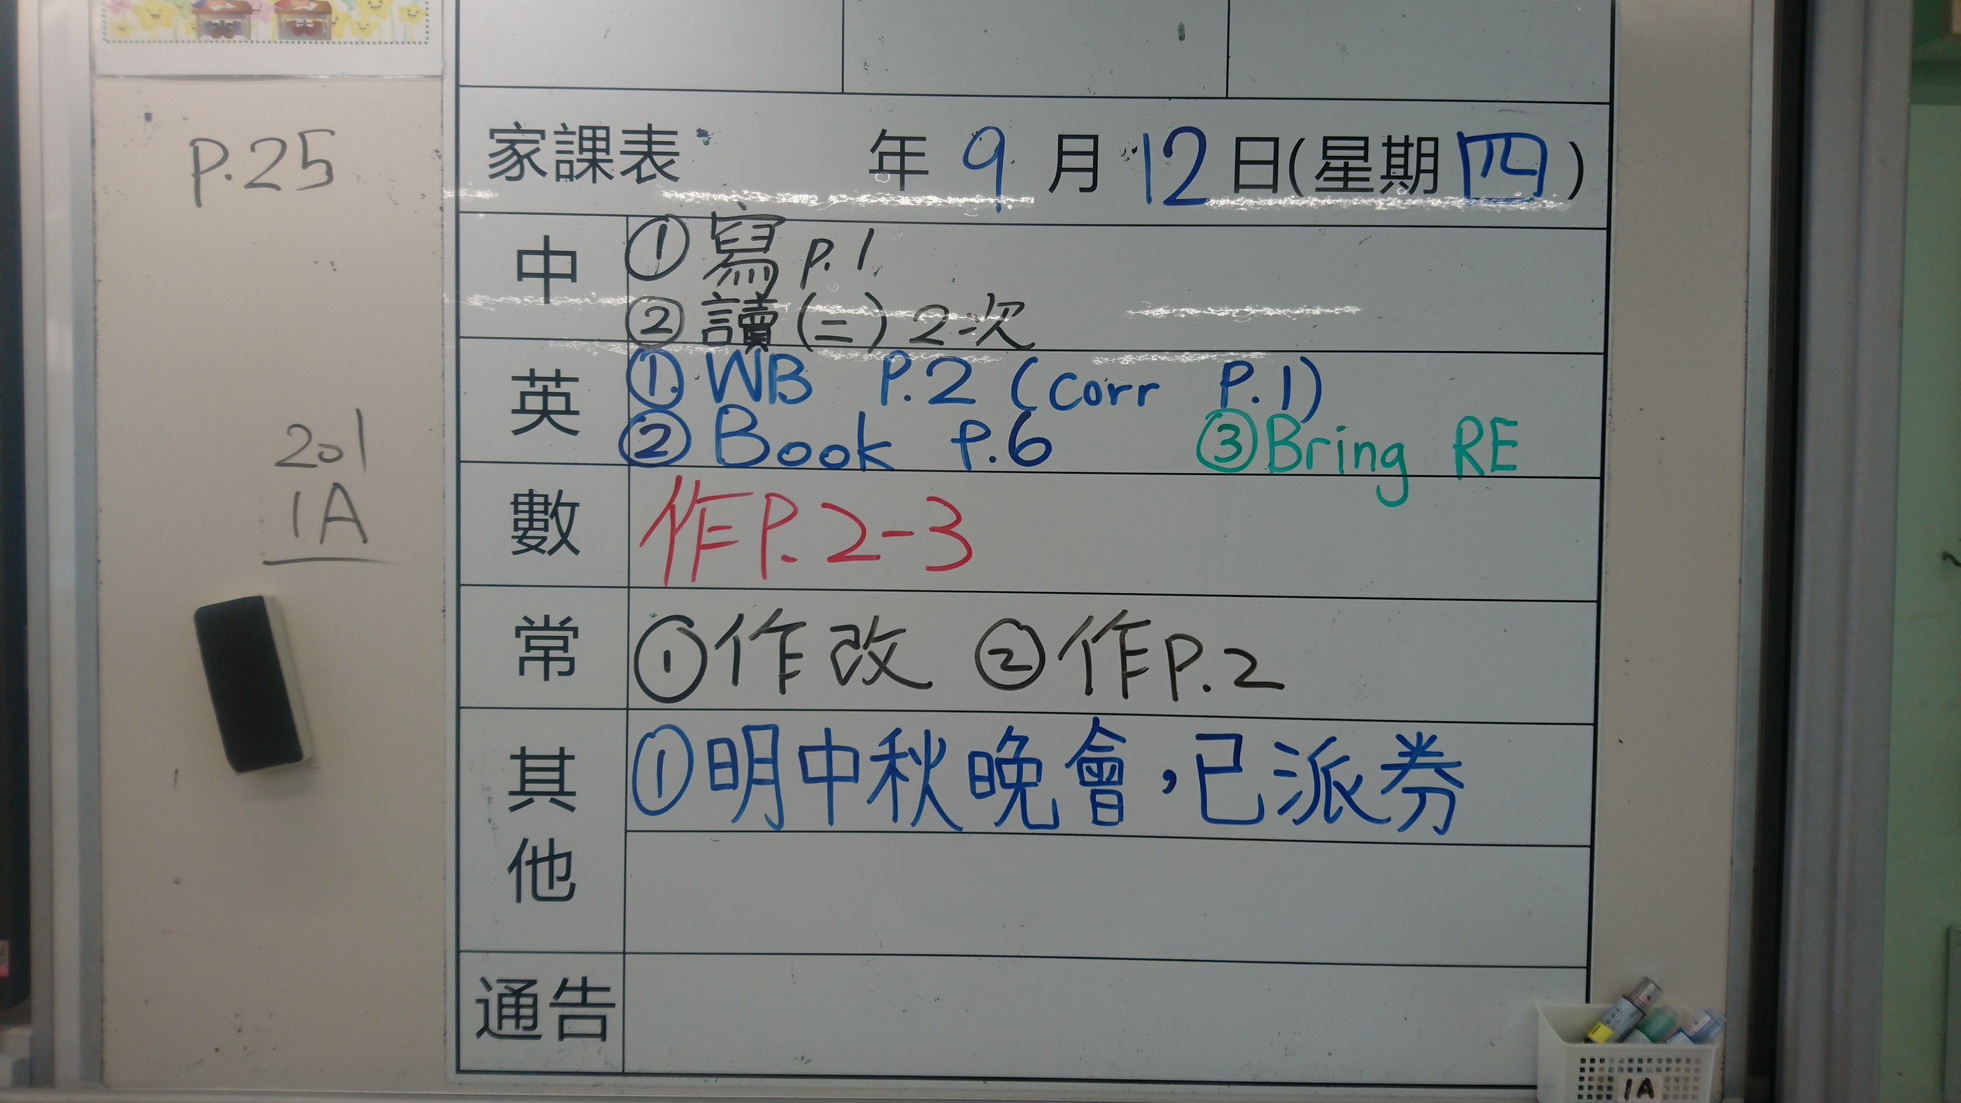 P.25
201
1A
家課表 年 9 月 12 日(星期 四 )
中
① 寫 p.1
② 讀(二) 2次
英
① WB P.2 (corr P.1)
② Book P.6 ③ Bring RE
數
作P.2-3
常
① 作改 ② 作P.2
其他
① 明中秋晚會，已派券
通告
1A